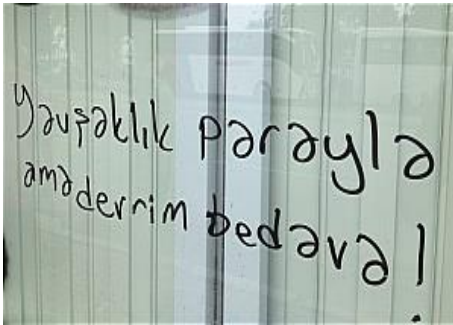 yavşaklık parayla
ama devrim bedava!